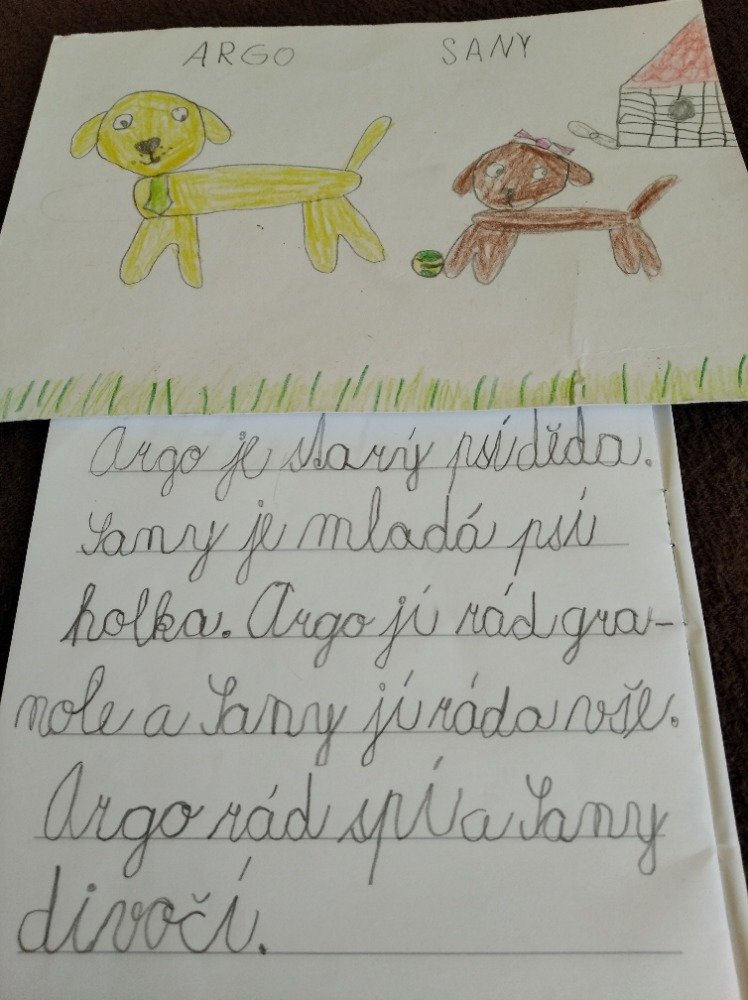 ARGO SANY
Argo je starý psí děda.
Sany je mladá psí
holka. Argo jí rád gra-
nole a Sany jí ráda vše.
Argo rád spí a Sany
divočí.